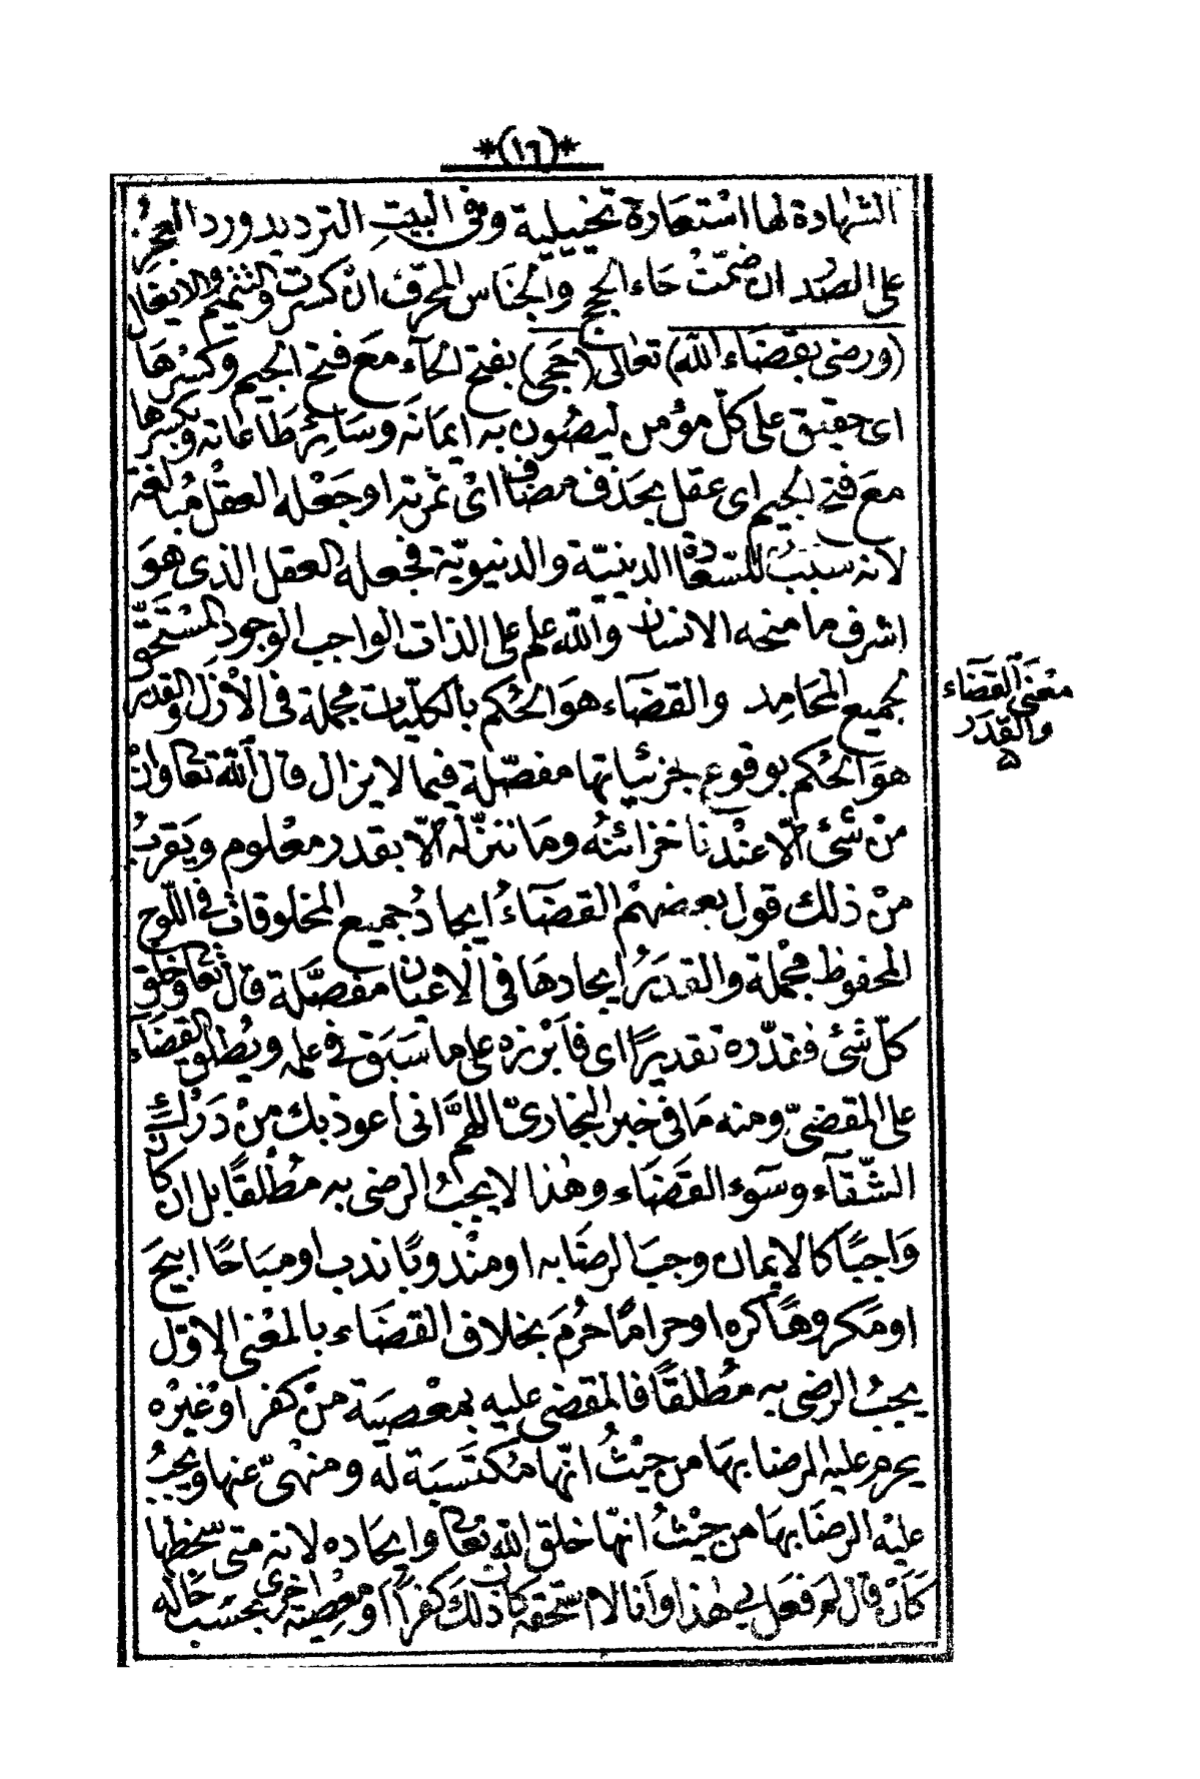 *(١٦)*
الشهادة لها استعارة تخييلية وفى البيت الترديد ورد العجز
على الصدر ان ضممت حاء الحجج والجناس المحرّف ان كسرت والتتميم والايغال
(ورضى بقضاء الله) تعالى (حجى) بفتح الحاء مع فتح الجيم وكسرها
اى حقيق على كلّ مؤمن ليصون به ايمانه وسائر طاعاته وبكسرها
مع فتح الجيم اى عقل بحذف مضاف اى ثمرته او جعله العقل مبالغة
لانه سبب للسّعادة الدينيّة والدنيويّة فجعله العقل الذى هو
اشرف ما منحه الانسان والله علم على الذات الواجب الوجود المستحقّ
لجميع المحامد والقضاء هو الحكم بالكلّيات مجملة فى الأزل والقدر
هو الحكم بوقوع جزئياتها مفصّلة فيما لا يزال قال الله تعالى وان
من شئ الّا عندنا خزائنه وما ننزّله الّا بقدر معلوم ويقرب
من ذلك قول بعضهم القضاء ايجاد جميع المخلوقات فى اللّوح
المحفوظ مجملة والقدر ايجادها فى الأعيان مفصّلة قال تعالى وخلق
كلّ شئ فقدّره تقديرًا اى فأبرزه على ما سبق فى علمه ويُطلق القضاء
على المقضىّ ومنه ما فى خبر البخارىّ اللهمّ انى اعوذ بك من درك
الشّقآء وسوء القضاء وهذا لا يجب الرضى به مُطلقًا بل ان كان
واجبًا كالايمان وجب الرضا به او مندوبًا ندب او مباحًا ابيح
او مكروهًا كره او حرامًا حرُم بخلاف القضاء بالمعنى الاوّل
يجبُ الرضى به مُطلقًا فالمقضى عليه بمعْصية من كفر او غيره
يحرم عليه الرضا بها من حيثُ انّها مكتسبة له ومنهىّ عنها ويجبُ
عليه الرضا بها من حيثُ انّها خلق الله تعالى وايجاده لانه متى سخطها
كأن قال لم فعل بى هذا وانا لا استحقه كان ذلك كفرًا او معصية اخرى بحسب حاله
معنى القضاء
والقدر